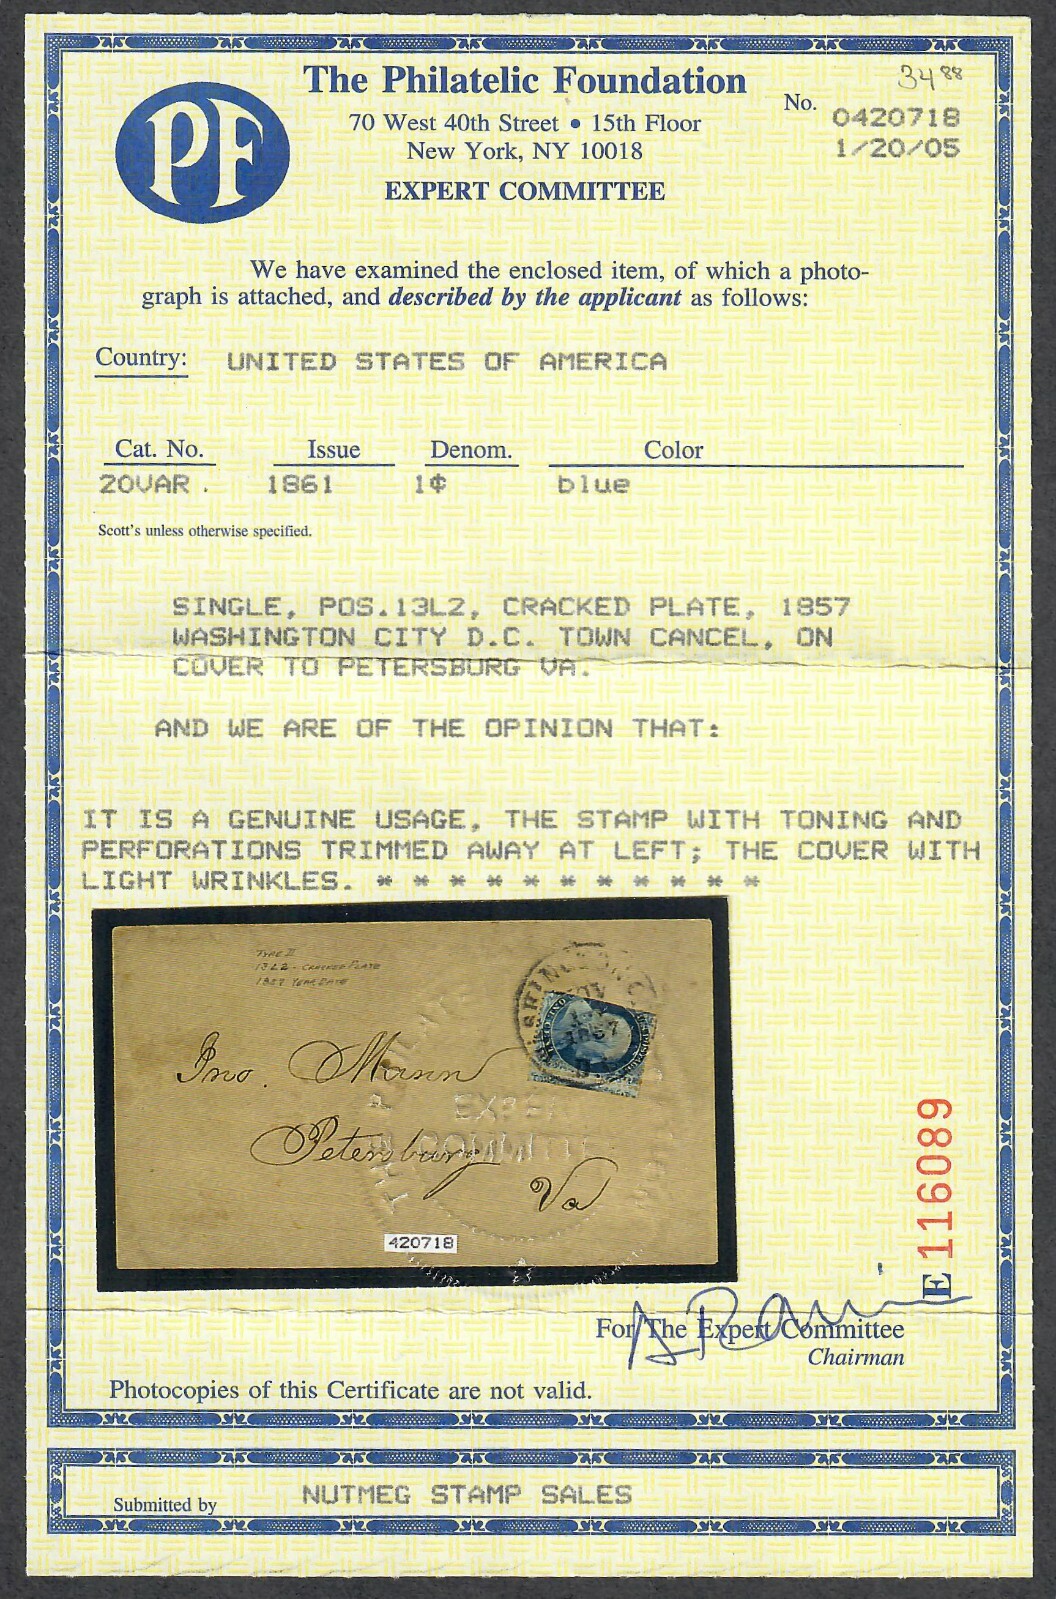 The Philatelic Foundation
70 West 40th Street • 15th Floor
New York, NY 10018
EXPERT COMMITTEE
PF
34 88
No. 0420718
1/20/05
We have examined the enclosed item, of which a photo-
graph is attached, and described by the applicant as follows:
Country: UNITED STATES OF AMERICA
Cat. No. Issue Denom. Color
20VAR. 1861 1¢ blue
Scott's unless otherwise specified.
SINGLE, POS.13L2, CRACKED PLATE, 1857
WASHINGTON CITY D.C. TOWN CANCEL, ON
COVER TO PETERSBURG VA.
AND WE ARE OF THE OPINION THAT:
IT IS A GENUINE USAGE, THE STAMP WITH TONING AND
PERFORATIONS TRIMMED AWAY AT LEFT; THE COVER WITH
LIGHT WRINKLES. * * * * * * * * * * *
TYPE II
13L2 - CRACKED PLATE
1857 YEAR DATE
NOV
1857
Jno. Mann
Petersburg
Va
EXPERT
COMMITTE
420718
E 116089
For The Expert Committee
Chairman
Photocopies of this Certificate are not valid.
Submitted by NUTMEG STAMP SALES